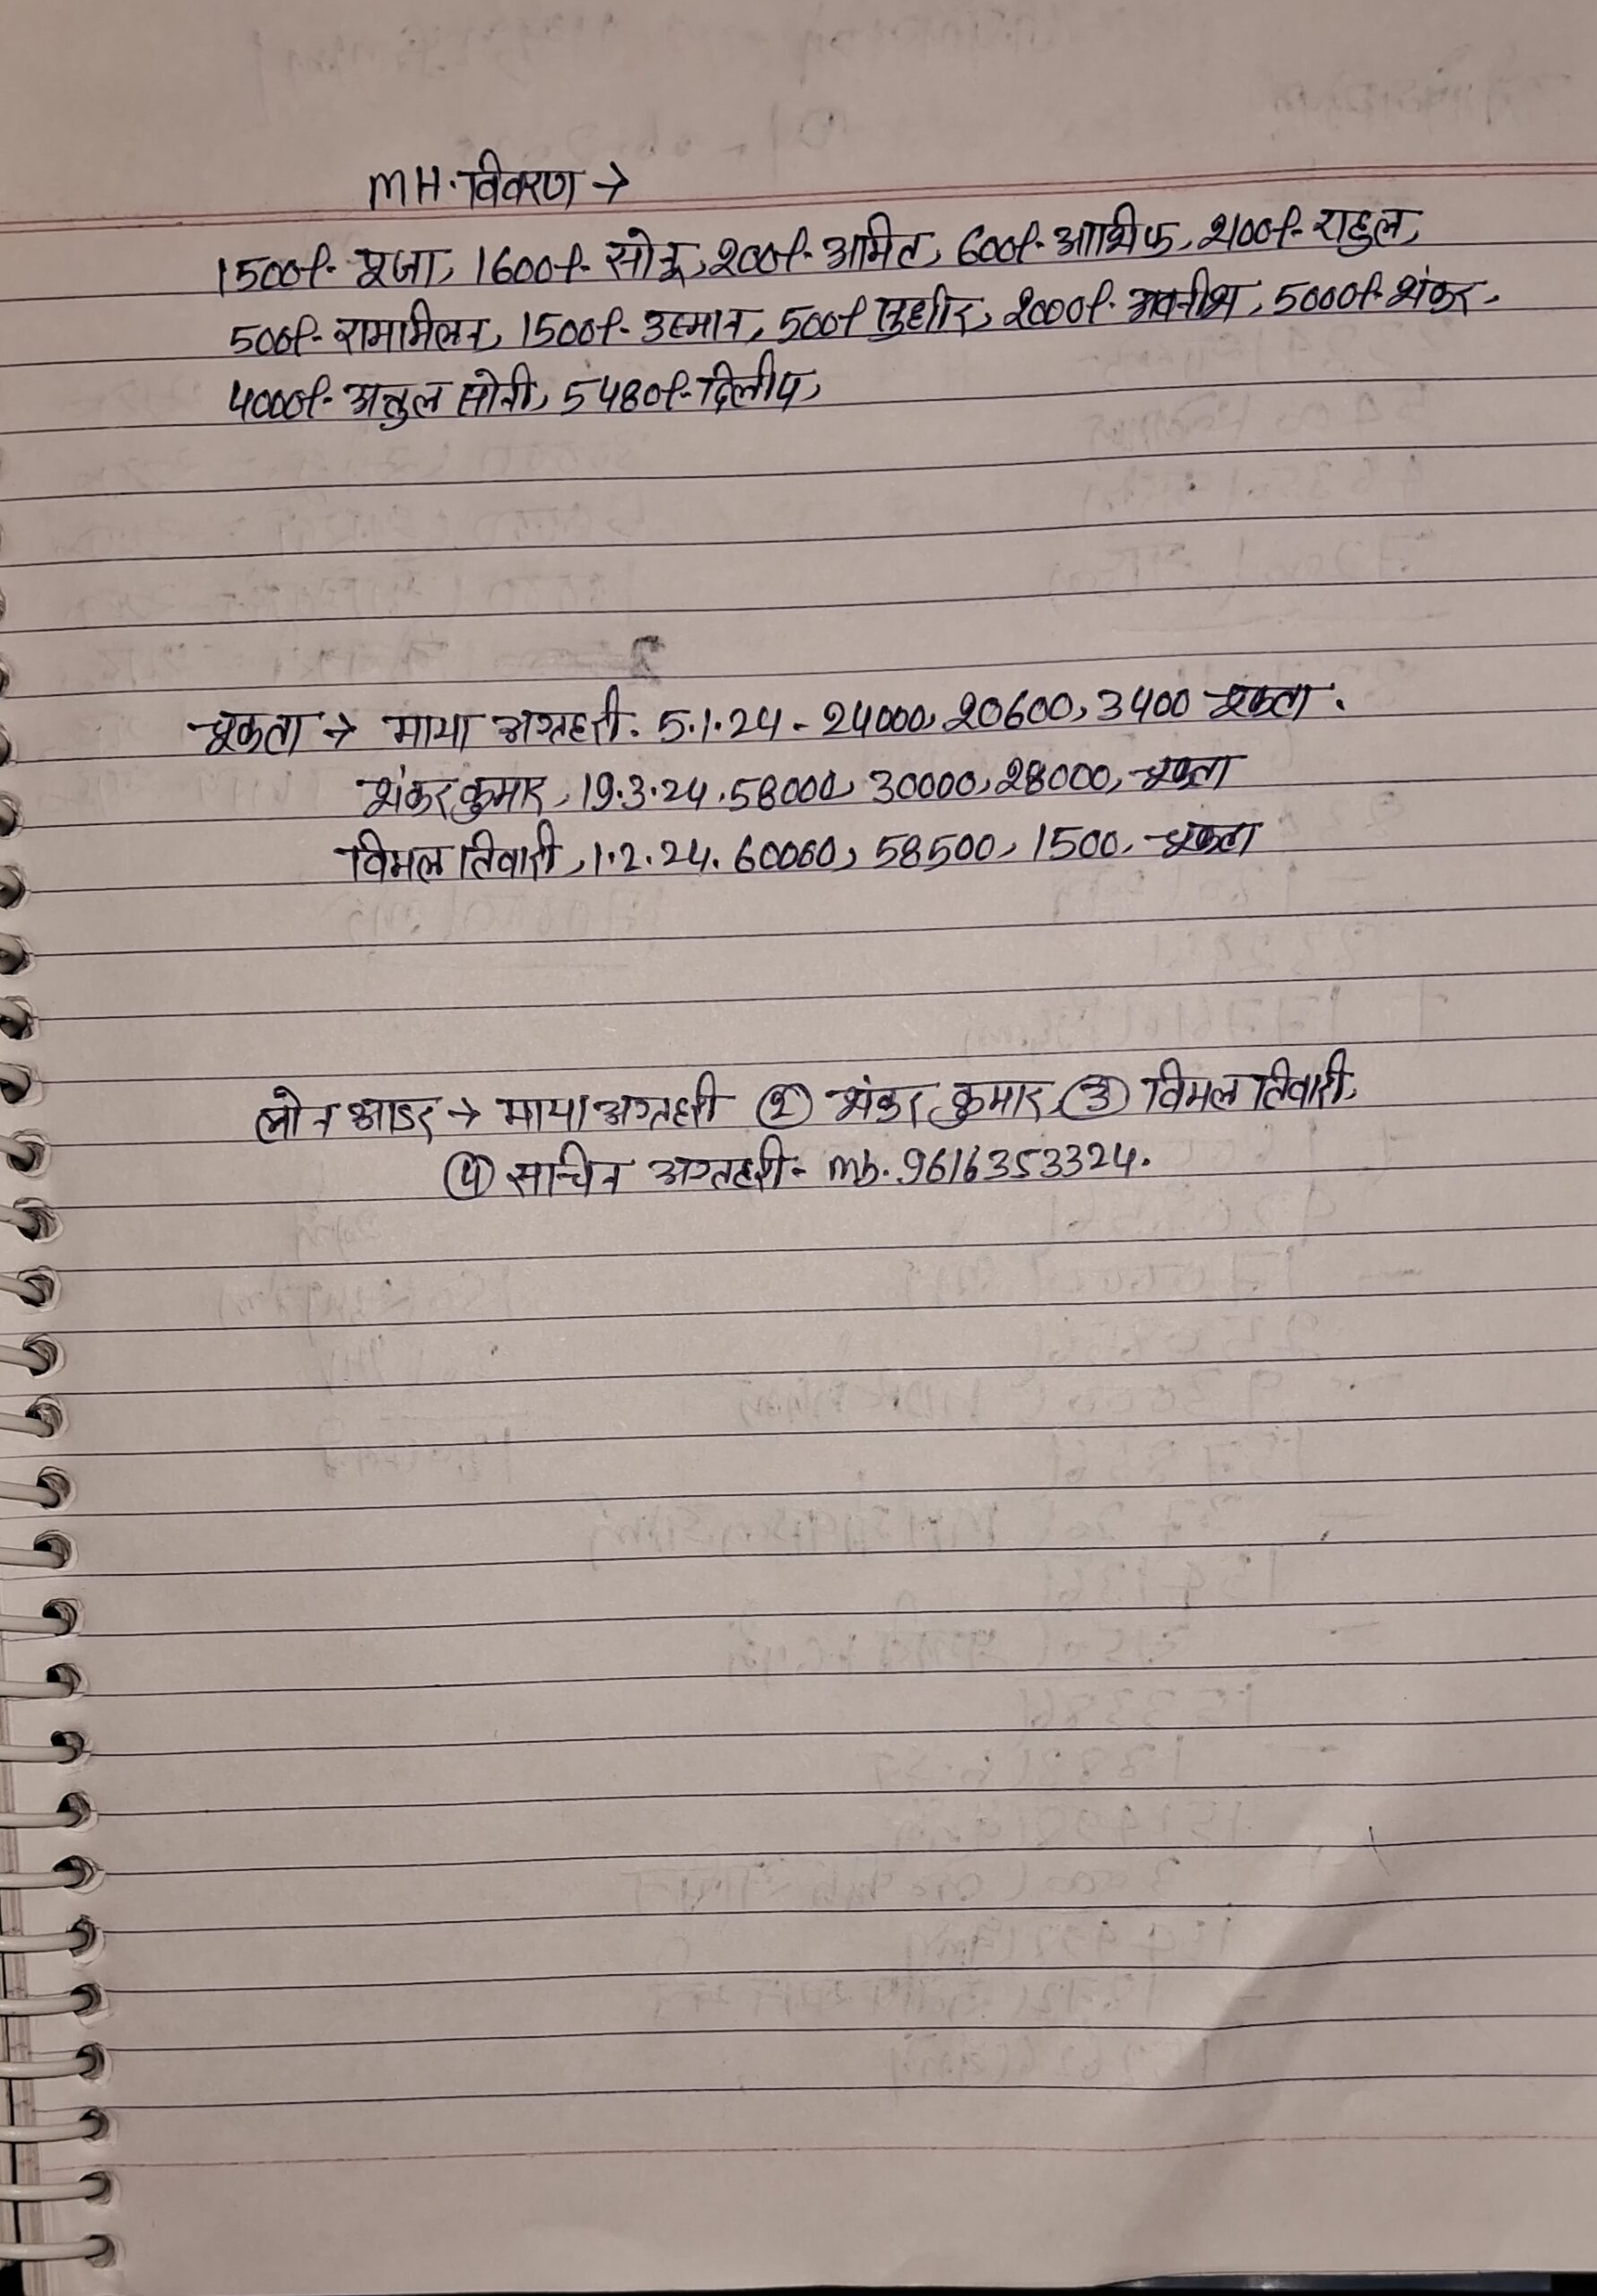 MH. विवरण →
1500/- पूजा, 1600/- सोनू, 200/- अमित, 600/- आशिफ, 2100/- राहुल,
500/- राममिलन, 1500/- उस्मान, 500/ सुधीर, 2000/- अवनीश, 5000/- शंकर,
4000/- अतुल सोनी, 5480/- दिलीप,
चुकता → माया अग्रहरी. 5.1.24 - 24000, 20600, 3400 चुकता.
शंकर कुमार, 19.3.24. 58000, 30000, 28000, चुकता
विमल तिवारी, 1.2.24. 60000, 58500, 1500, चुकता
लोन आडर → माया अग्रहरी ② शंकर कुमार, ③ विमल तिवारी,
④ सचिन अग्रहरी - mb. 9616353324.